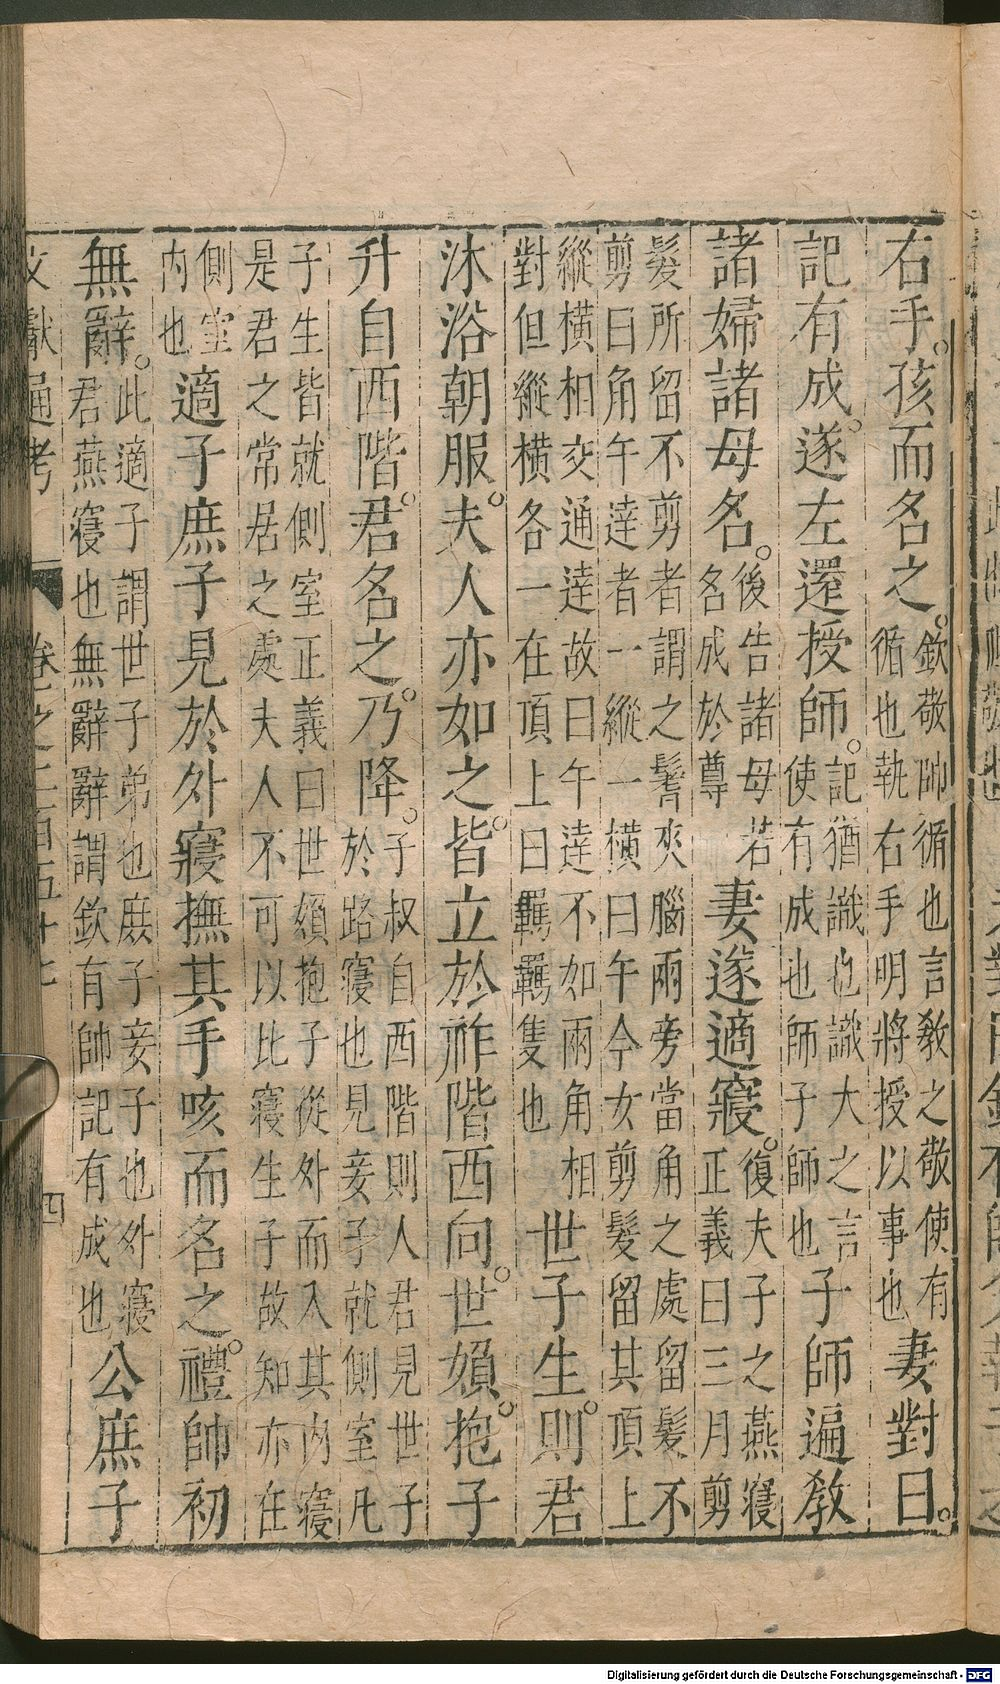 右手。孩而名之。欽敬帥循也言教之敬使有循也執右手明將授以事也妻對曰。
記有成。遂左還授師。記猶識也識大之言使有成也師子師也子師遍教
諸婦諸母名。後告諸母若名成於尊妻遂適寢。復夫子之燕寢正義曰三月剪
髮所留不剪者謂之鬌夾腦兩旁當角之處留髮不
剪曰角午達者一縱一橫曰午今女剪髮留其頂上
縱橫相交通達故曰午達不如兩角相
對但縱橫各一在頂上曰羈羈隻也世子生則。君
沐浴朝服。夫人亦如之。皆立於祚階西向。世嬪。抱子
升自西階。君名之。乃降。子叔自西階則人君見世子於路寢也見妾子就側室凡
子生皆就側室正義曰世嬪抱子從外而入其內寢
是君之常居之處夫人不可以比寢生子故知亦在
側室內也適子庶子見於外寢撫其手咳而名之。禮帥初
無辭。此適子謂世子弟也庶子妾子也外寢君燕寢也無辭辭謂欽有帥記有成也公庶子
文獻通考 卷之二百五十七 四
Digitalisierung gefördert durch die Deutsche Forschungsgemeinschaft - DFG